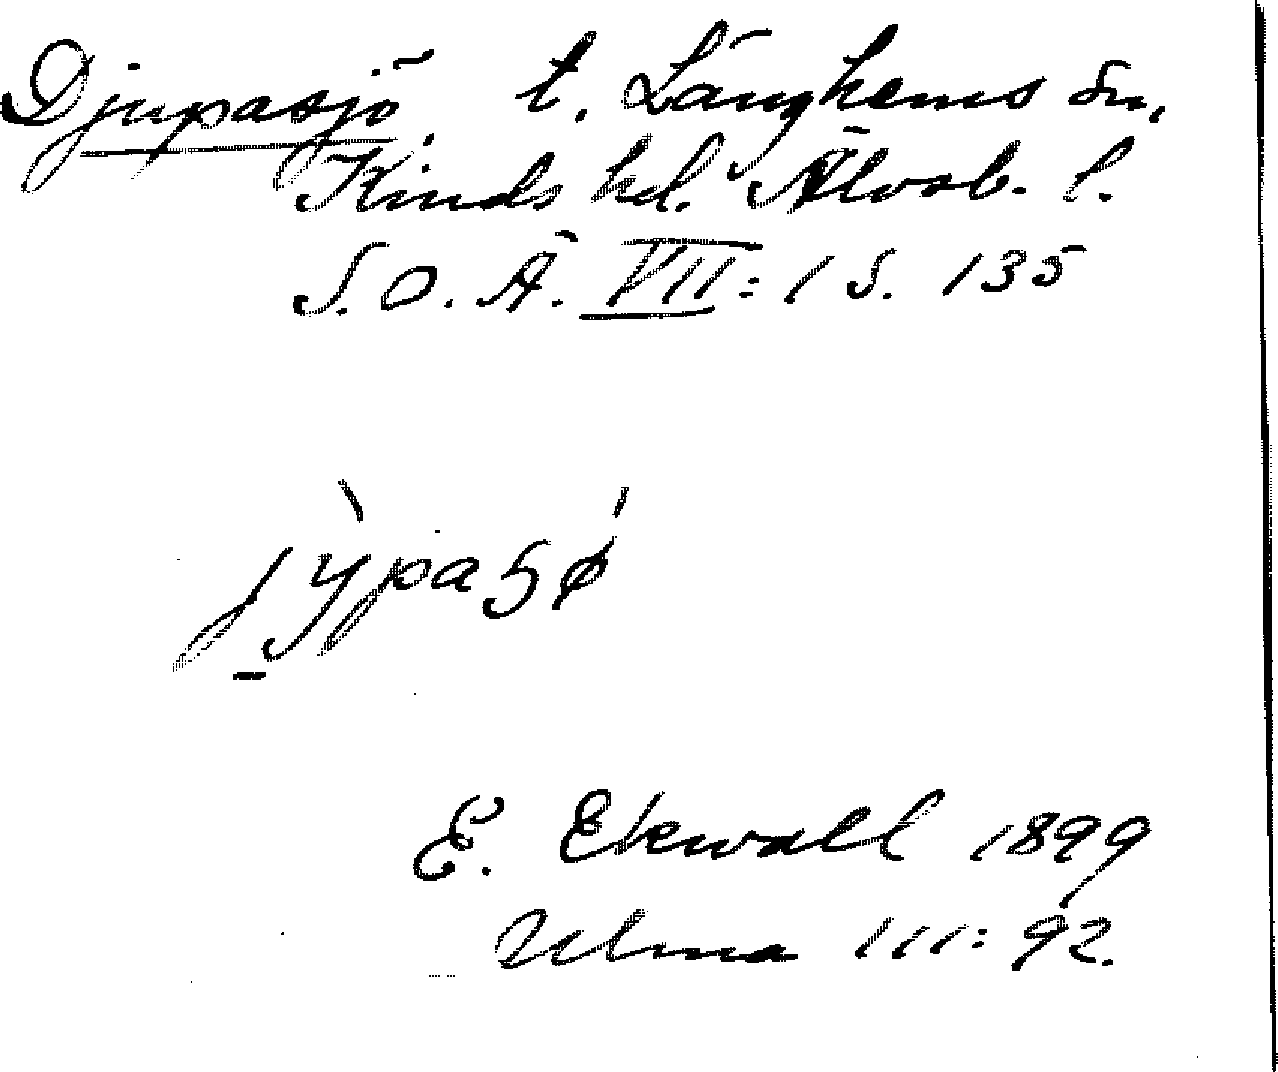 Djupasjö t. Länghems sn,
Kinds hd. Älvsb. l.
S.O.Ä. VII: 1 S. 135
E. Ekwall 1899
Ulma 111: 92.